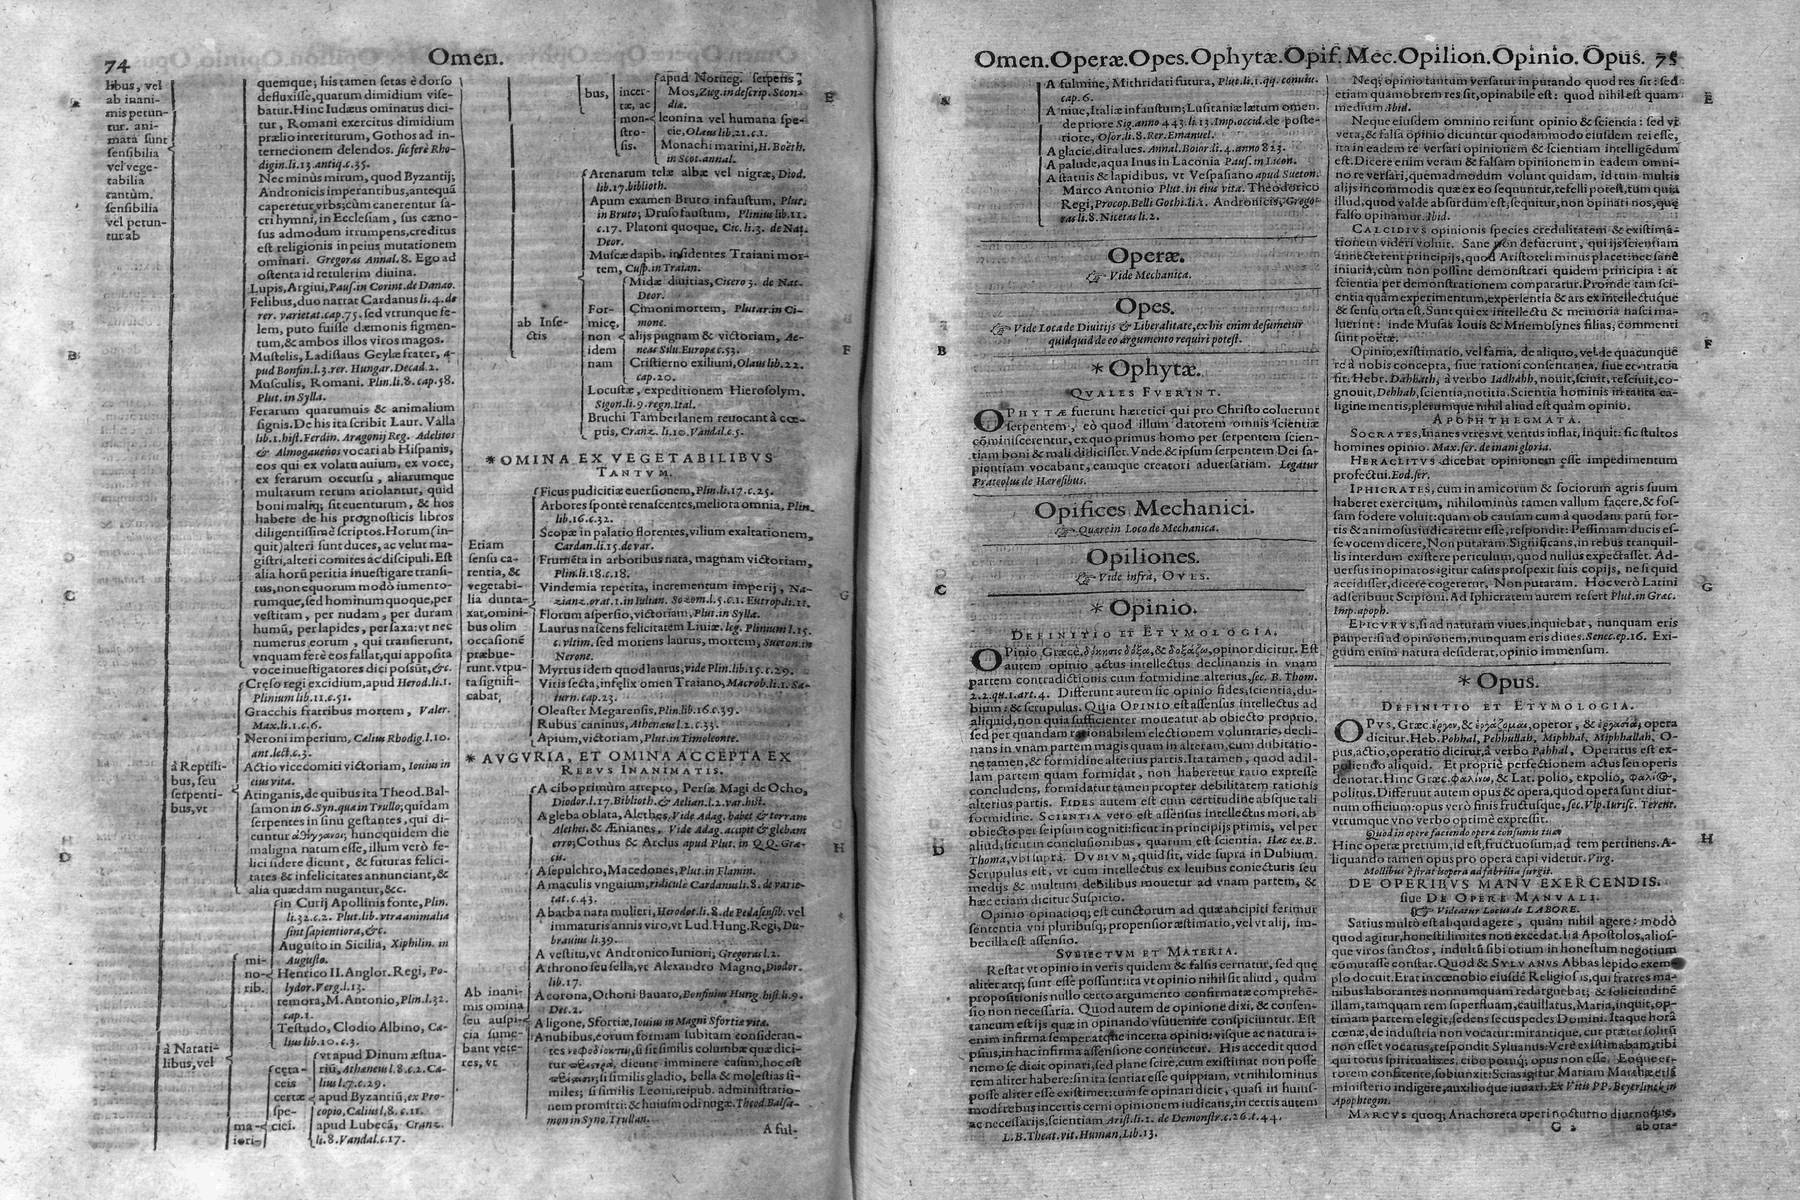 74
Omen.
libus, vel
ab inani-
mis petun-
tur. ani-
mata sunt
sensibilia
vel vege-
tabilia
tantùm.
sensibilia
vel petun-
tur ab
quemque; his tamen setas è dorso
defluxisse, quatum dimidium vise-
batur. Hinc Iudæus ominatus dici-
tur, Romani exercitus dimidium
prælio interiturum, Gothos ad in-
ternecionem delendos. sic ferè Rho-
digin. li. 13. antiq. c. 35.
Nec minùs mirum, quod Byzantij;
Andronicis imperantibus, antequã
caperetur vrbs; cùm canerentur sa-
cri hymni, in Ecclesiam, sus cæno-
sus admodum irrumpens, creditus
est religionis in peius mutationem
ominari. Gregoras Annal. 8. Ego ad
ostenta id retulerim diuina.
Lupis, Argiui, Paus. in Corint. de Danao.
Felibus, duo narrat Cardanus li. 4. de
rer. varietat. cap. 75. sed vtrunque fe-
lem, puto fuisse dæmonis figmen-
tum, & ambos illos viros magos.
Mustelis, Ladislaus Geylæ frater, a-
pud Bonfin. l. 3. rer. Hungar. Decad. 2.
Musculis, Romani. Plin. li. 8. cap. 58.
Plut. in Sylla.
Ferarum quarumuis & animalium
signis. De his ita scribit Laur. Valla
lib. 1. hist. Ferdin. Aragonij Reg. Adelitos
& Almogaueños vocari ab Hispanis,
eos qui ex volatu auium, ex voce,
ex ferarum occursu, aliarumque
multarum rerum ariolantur, quid
boni maliq; sit euenturum, & hos
habere de his prognosticis libros
diligentissimè scriptos. Horum (in-
quit) alteri sunt duces, ac velut ma-
gistri, alteri comites ac discipuli. Est
alia horũ peritia inuestigare transi-
tus, non equorum modò iumento-
rumque, sed hominum quoque, per
vestitam, per nudam, per duram
humũ, per lapides, per saxa: vt nec
numerus eorum, qui transierunt,
vnquam ferè eos fallat, qui apposita
voce inuestigatores dici possũt, &c.
à Reptili-
bus, seu
serpenti-
bus, vt
Crœso regi excidium, apud Herod. li. 1.
Plinium lib. 11. c. 51.
Gracchis fratribus mortem, Valer.
Max. li. 1. c. 6.
Neroni imperium, Cælius Rhodig. l. 10.
ant. lect. c. 3.
Actio vicecomiti victoriam, Iouius in
eius vita.
Atinganis, de quibus ita Theod. Bal-
samon in 6. Syn. qua in Trullo; quidam
serpentes in sinu gestantes, qui di-
cuntur ἀθίγγανοι; huncquidem die
maligna natum esse, illum verò fe-
lici sidere dicunt, & futuras felici-
tates & infelicitates annunciant, &
alia quædam nugantur, &c.
à Natati-
libus, vel
mi-
no-
rib.
in Curij Apollinis fonte, Plin.
li. 32. c. 2. Plut. lib. vtra animalia
sint sapientiora, &c.
Augusto in Sicilia, Xiphilin. in
Augusto.
Henrico II. Anglor. Regi, Po-
lydor. Verg. l. 13.
remora, M. Antonio, Plin. l. 32.
cap. 1.
Testudo, Clodio Albino, Ca-
lius lib. 10. c. 3.
ma-
iori-
ceta-
ceis
certæ
spe-
ciei.
vt apud Dinum æstua-
riũ, Athenæus l. 8. c. 2. Ca-
lius l. 7. c. 29.
apud Byzantiũ, ex Pro-
copio, Calius l. 8. c. 11.
apud Lubecã, Cranz.
li. 8. Vandal. c. 17.
bus,
incer-
tæ, ac
mon-
stro-
sis.
apud Norueg. serpens;
Mos, Zieg. in descrip. Scon-
diæ.
leonina vel humana spe-
cie, Olaus lib. 21. c. 1.
Monachi marini, H. Boëth.
in Scot. annal.
ab Inse-
ctis
Arenarum telæ albæ vel nigræ, Diod.
lib. 17. biblioth.
Apum examen Bruto infaustum, Plut.
in Bruto; Druso faustum, Plinius lib. 11.
c. 17. Platoni quoque, Cic. li. 3. de Nat.
Deor.
Muscæ dapib. insidentes Traiani mor-
tem, Cusp. in Traian.
For-
micę,
non
idem
nam
Midæ diuitias, Cicero 3. de Nat.
Deor.
Cimoni mortem, Plutar. in Ci-
mone.
alijs pugnam & victoriam, Ae-
neas Silu. Europæ c. 53.
Cristierno exilium, Olaus lib. 22.
cap. 20.
Locustæ, expeditionem Hierosolym.
Sigon. li. 9. regn. Ital.
Bruchi Tamberlanem reuocant à cœ-
ptis, Cranz. li. 10. Vandal. c. 5.
* OMINA EX VEGETABILIBVS
TANTVM.
Etiam
sensu ca-
rentia, &
vegetabi-
lia dunta-
xat, omini-
bus olim
occasionẽ
præbue-
runt. vtpu-
ta signifi-
cabat,
Ficus pudicitiæ euersionem, Plin. li. 17. c. 25.
Arbores spontè renascentes, meliora omnia, Plin.
lib. 16. c. 32.
Scopæ in palatio florentes, vilium exaltationem,
Cardan. li. 15. de var.
Frumẽta in arboribus nata, magnam victoriam,
Plin. li. 18. c. 18.
Vindemia repetita, incrementum imperij, Na-
zianz. orat. 1. in Iulian. Sozom. l. 5. c. 1. Eutrop. li. 11.
Florum aspersio, victoriam, Plut. in Sylla.
Laurus nascens felicitatem Liuiæ. leg. Plinium l. 15.
c. vltim. sed moriens laurus, mortem, Sueton. in
Nerone.
Myrtus idem quod laurus, vide Plin. lib. 15. c. 29.
Vitis secta, infęlix omen Traiano, Macrob. li. 1. Sa-
turn. cap. 23.
Oleaster Megarensis, Plin. lib. 16. c. 39.
Rubus caninus, Athenæus l. 2. c. 33.
Apium, victoriam, Plut. in Timoleonte.
* AVGVRIA, ET OMINA ACCEPTA EX
REBVS INANIMATIS.
Ab inani-
mis omina
seu auspi-
cia sume-
bant vete-
res, vt
A cibo primùm arrepto, Persæ Magi de Ocho,
Diodor. l. 17. Biblioth. & Aelian. l. 2. var. hist.
A gleba oblata, Alethes, Vide Adag. habet & terram
Alethes. & Ænianes, Vide Adag. accipit & glebam
erro; Cothus & Arclus apud Plut. in Q. Q. Græ-
cis.
A sepulchro, Macedones, Plut. in Flamin.
A maculis vnguium, ridiculè Cardanus li. 8. de varie-
tat. c. 43.
A barba nata mulieri, Herodot. li. 8. de Pedasensib. vel
immaturis annis viro, vt Lud. Hung. Regi, Du-
brauius li. 39.
A vestitu, vt Andronico Iuniori, Gregoras l. 2.
A throno seu sella, vt Alexandro Magno, Diodor.
lib. 17.
A corona, Othoni Bauaro, Bonfinius Hung. hist. li. 9.
Dec. 2.
A ligone, Sfortiæ, Iouius in Magni Sfortiæ vita.
A nubibus, eorum formam subitam consideran-
tes νεφοδιῶκται; si sit similis columbæ quæ dici-
tur dicunt imminere casum, hoc est
si similis gladio, bella & molestias si-
miles; si similis Leoni, reipub. administratio-
nem promitti: & huiusmodi nugæ. Theod. Balsa-
mon in Syno. Trullan.
A ful-
Omen. Operæ. Opes. Ophytæ. Opif. Mec. Opilion. Opinio. Opus. 75
A fulmine, Mithridati futura, Plut. li. 1. qq. conuiu.
cap. 6.
A niue, Italiæ infaustum; Lusitaniæ lætum omen.
de priore Sig. anno 443. li. 13. Imp. occid. de poste-
riore, Osor. li. 8. Rer. Emanuel.
A glacie, dira lues. Annal. Boior. li. 4. anno 823.
A palude, aqua Inus in Laconia Paus. in Licon.
A statuis & lapidibus, vt Vespasiano apud Sueton.
Marco Antonio Plut. in eius vita. Theodorico
Regi, Procop. Belli Gothi. li. 1. Andronicis, Grego-
ras li. 8. Nicetas li. 2.
Operæ.
Vide Mechanica.
Opes.
Vide Loca de Diuitijs & Liberalitate, ex his enim desumetur
quidquid de eo argumento requiri potest.
* Ophytæ.
QVALES FVERINT.
OPHYTÆ fuerunt hæretici qui pro Christo coluerunt
serpentem, eò quod illum datorem omnis scientiæ
cõminiscerentur, ex quo primus homo per serpentem scien-
tiam boni & mali didicisset. Vnde & ipsum serpentem Dei sa-
pientiam vocabant, eamque creatori aduersariam. Legatur
Prateolus de Hæresibus.
Opifices Mechanici.
Quære in Loco de Mechanica.
Opiliones.
Vide infrà, OVES.
* Opinio.
DEFINITIO ET ETYMOLOGIA.
OPinio Græcè, δόκησις δόξα, & δοξάζω, opinor dicitur. Est
autem opinio actus intellectus declinanzis in vnam
partem contradictionis cum formidine alterius, sec. B. Thom.
2. 2. qu. 1. art. 4. Differunt autem sic opinio fides, scientia, du-
bium & scrupulus. Quia OPINIO est assensus intellectus ad
aliquid, non quia sufficienter moueatur ab obiecto proprio,
sed per quandam rationabilem electionem voluntariè, decli-
nans in vnam partem magis quam in alteram, cum dubitatio-
ne tamen, & formidine alterius partis. Ita tamen, quod ad il-
lam partem quam formidat, non haberetur ratio expressè
concludens, formidatur tamen propter debilitatem rationis
alterius partis. FIDES autem est cum certitudine absque tali
formidine. SCIENTIA vero est assensus intellectus mori, ab
obiecto per seipsum cognití: sicut in principijs primis, vel per
aliud, sicut in conclusionibus, quarum est scientia. Hæc ex. B.
Thoma, vbi suprà. DVBIVM, quid sit, vide supra in Dubium.
Scrupulus est, vt cum intellectus ex leuibus coniecturis seu
medijs & multum debilibus mouetur ad vnam partem, &
hæc etiam dicitur Suspicio.
Opinio opinatioq; est cunctorum ad quæ ancipiti ferimur
sententia vni pluribusq; propensior æstimatio, vel vt alij, im-
becilla est assensio.
SVBIECTVM ET MATERIA.
Restat vt opinio in veris quidem & falsis cernatur, sed quę
aliter atq; sunt esse possunt: ita vt opinio nihil sit aliud, quàm
propositionis nullo certo argumento confirmatæ comprehẽ-
sio non necessaria. Quod autem de opinione dixi, & consen-
taneum est ijs quæ in opinando vsuuenire conspiciuntur. Est
enim infirma semper atque incerta opinio; vt ipsa ac natura i-
psius, in hac infirma assensione continetur. His accedit quod
nemo se dicit opinari, sed plane scire, cum existimat non posse
rem aliter habere: sin ita sentiat esse quippiam, vt nihilominus
posse aliter esse existimet: tum se opinari dicit, quasi in huius-
modi rebus incertis cerni opinionem iudicans, in certis autem
ac necessarijs, scientiam Arist. li. 1. de Demonstr. c. 26. t. 44.
L. B. Theat. vit. Human, Lib. 13.
Neq; opinio tantum versatur in putando quod res sit: sed
etiam quamobrem res sit, opinabile est: quod nihil est quàm
medium Ibid.
Neque eiusdem omnino rei sunt opinio & scientia: sed vt
vera, & falsa opinio dicuntur quodammodo eiusdem rei esse,
ita in eadem re versari opinionem & scientiam intelligẽdum
est. Dicere enim veram & falsam opinionem in eadem omni-
no re versari, quemadmodum volunt quidam, id tum multis
alijs incommodis quæ ex eo sequuntur, refelli potest, tum quia
illud, quod valde absurdum est, sequitur, non opinati nos, quę
falsò opinamur. Ibid.
CALCIDIVS opinionis species credulitatem & existimã-
tionem videri voluit. Sane non defuerunt, qui ijs scientiam
annecterent principijs, quod Aristoteli minus placet: nec sanè
iniuriâ, cùm non possint demonstrari quidem principia: at
scientia per demonstrationem comparatur. Proinde tam sci-
entia quàm experimentum, experientia & ars ex intellectu quę
& sensu orta est. Sunt qui ex intellectu & memoria nasci ma-
luerint: inde Musas Iouis & Mnemosynes filias, commenti
sunt poëtæ.
Opinio, existimatio, vel fama, de aliquo, vel de quacunque
re à nobis concepta, siue rationi consentanea, siue contraria
sit. Hebr. Dahhath, à verbo Iadhahh, nouit, sciuit, resciuit, co-
gnouit, Dehhah, scientia, notitia. Scientia hominis in tanta ca-
ligine mentis, plerumque nihil aliud est quàm opinio.
APOPHTHEGMATA.
SOCRATES, Inanes vtres vt ventus inflat, inquit: sic stultos
homines opinio. Max. ser. de inani gloria.
HERACLITVS dicebat opinionem esse impedimentum
profectui. Eod. ser.
IPHICRATES, cum in amicorum & sociorum agris suum
haberet exercitum, nihilominùs tamen vallum facere, & fos-
sam fodere voluit: quam ob causam cum à quodam parũ for-
tis & animosus iudicaretur esse, respondit: Pessimam ducis es-
se vocem dicere, Non putaram. Significans, in rebus tranquil-
lis interdum existere periculum, quod nullus expectasset. Ad-
uersus inopinatos igitur casus prospexit suis copijs, ne si quid
accidisset, dicere cogeretur, Non putaram. Hoc verò Latini
adscribunt Scipioni. Ad Iphicratem autem refert Plut. in Græc.
Imp. apoph.
EPICVRVS, si ad naturam viues, inquiebat, nunquam eris
pauper: si ad opinionem, nunquam eris diues. Senec. ep. 16. Exi-
guum enim natura desiderat, opinio immensum.
* Opus.
DEFINITIO ET ETYMOLOGIA.
OPVS, Græc. ἔργον, & ἐργάζομαι, operor, & ἐργασία, opera
dicitur. Heb. Pohhal, Pehhullah, Miphhal, Miphhallah, O-
pus, actio, operatio dicitur, à verbo Pahhal, Operatus est ex-
poliendo aliquid. Et propriè perfectionem actus seu operis
denotat. Hinc Græc. & Lat. polio, expolio,
politus. Differunt autem opus & opera, quod opera sunt diut-
num officium: opus verò finis fructusque, sec. Vlp. Iurisc. Terent.
vtrumque vno verbo optimè expressit.
Quod in opere faciendo operæ consumis tuæ
Hinc operæ pretium, id est, fructuosum, ad rem pertinens. A-
liquando tamen opus pro opera capi videtur. Virg.
Mollibus è stratis opera ad fabrilia surgit.
DE OPERIBVS MANV EXERCENDIS.
siue DE OPERE MANVALI.
Videatur Locus de LABORE.
Satius multò est aliquid agere, quàm nihil agere: modò
quod agitur, honesti limites non excedat. Ita Apostolos, alios-
que viros sanctos, indultũ sibi otium in honestum negotium
cõmutasse constat. Quod & SYLVANVS Abbas lepido exem-
plo docuit. Erat in cœnobio eiusdẽ Religiosus, qui fratres ma-
nibus laborantes nonnumquam redarguebat; & solicitudinẽ
illam, tamquam rem superfluam, cauillatus, Maria, inquit, op-
timam partem elegit, sedens secus pedes Domini. Itaque horâ
cœnæ, de industria non vocatur: mirantique, cur præter solitũ
non esset vocatus, respondit Syluanus: Verè existimabam, tibi
qui totus spiritualis es, cibo potuq; opus non esse. Eoque er-
rorem confitente, subiunxit: Scias igitur Mariam Marthæ etiã
ministerio indigere, auxilioque iuuari. Ex Vitis PP. Beyerlinck in
Apophtegm.
MARCVS quoq; Anachoreta operi nocturno diurnoque,
G 2
ab ora-